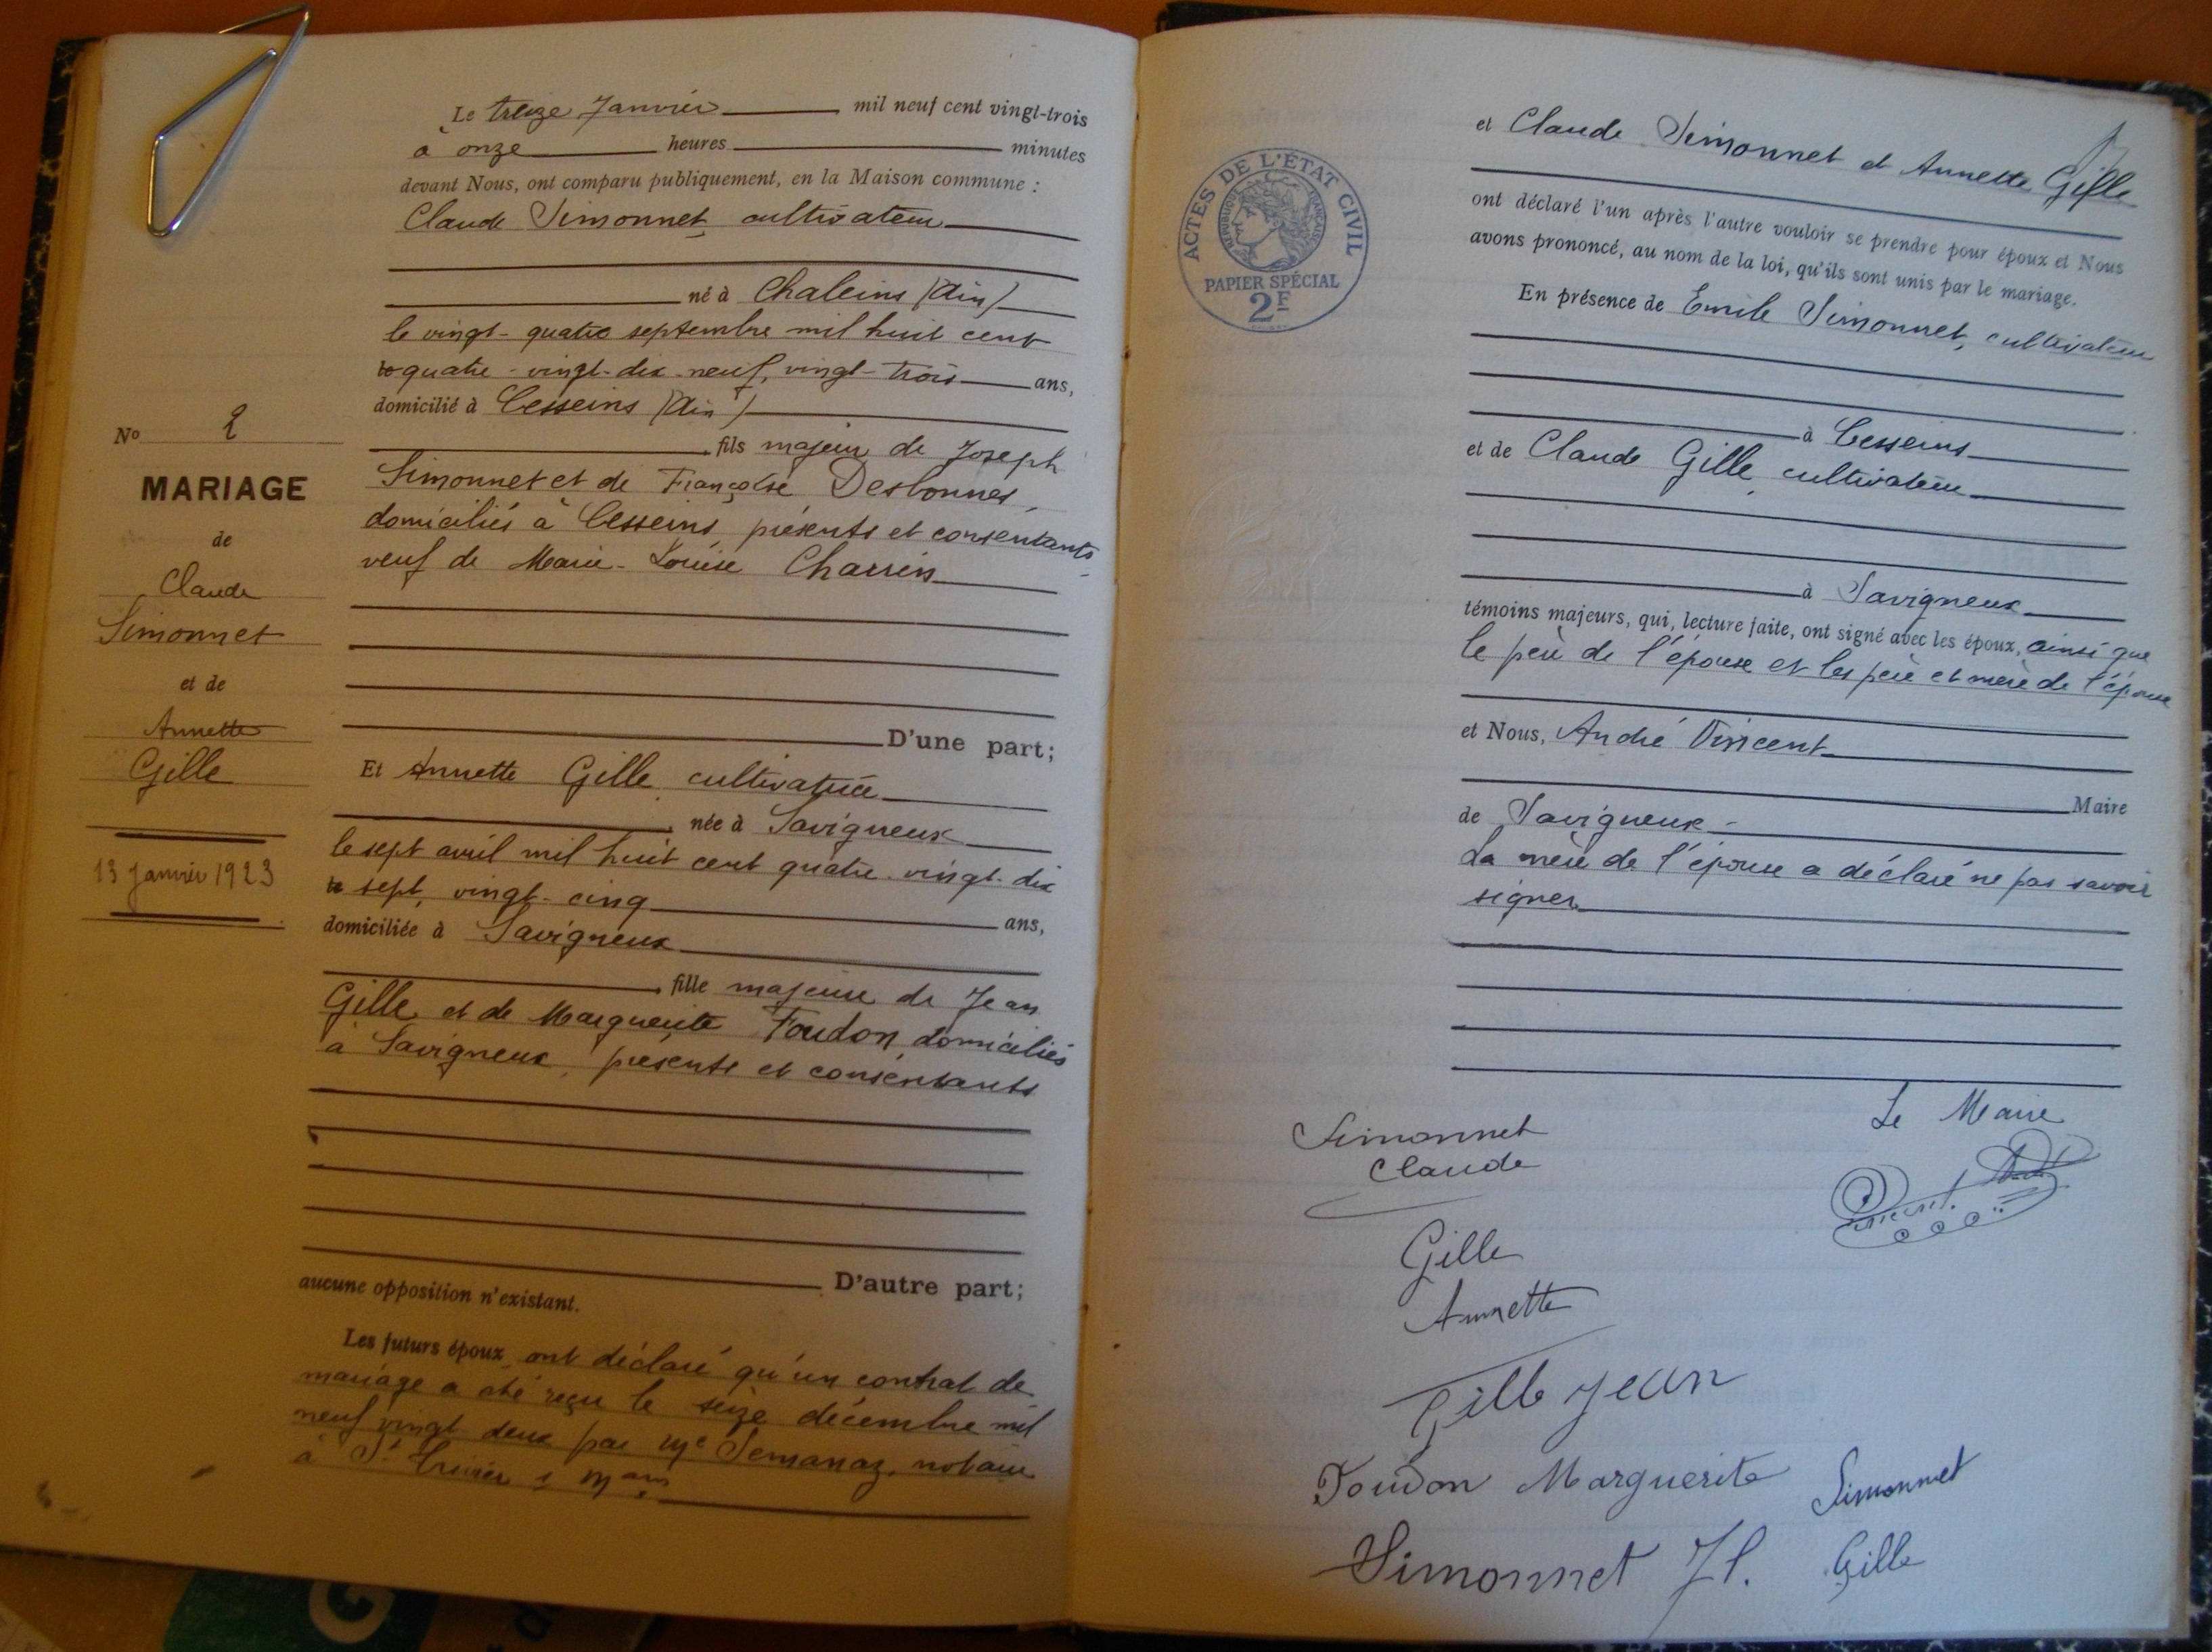 Le treize Janvier mil neuf cent vingt-trois
à onze heures minutes
devant Nous, ont comparu publiquement, en la Maison commune :
Claude Simonnet, cultivateur
né à Chaleins (Ain)
le vingt-quatre septembre mil huit cent
quatre-vingt-dix-neuf, vingt-trois ans,
domicilié à Cesseins (Ain)
fils majeur de Joseph
Simonnet et de Françoise Desbonnes,
domiciliés à Cesseins, présents et consentants
veuf de Marie-Louise Charrin
D'une part;
Et Annette Gille, cultivatrice
née à Savigneux
le sept avril mil huit cent quatre-vingt-dix
sept, vingt-cinq ans,
domiciliée à Savigneux
fille majeure de Jean
Gille et de Marguerite Foudon, domiciliés
à Savigneux, présents et consentants
D'autre part;
aucune opposition n'existant.
Les futurs époux ont déclaré qu'un contrat de
mariage a été reçu le seize décembre mil
neuf vingt deux par Me Semanaz, notaire
à St Trivier s Mans
No 2
MARIAGE
de
Claude
Simonnet
et de
Annette
Gille
13 Janvier 1923
ACTES DE L'ÉTAT CIVIL
RÉPUBLIQUE FRANÇAISE
PAPIER SPÉCIAL
2F
et Claude Simonnet et Annette Gille
ont déclaré l'un après l'autre vouloir se prendre pour époux et Nous
avons prononcé, au nom de la loi, qu'ils sont unis par le mariage.
En présence de Emile Simonnet, cultivateur
à Cesseins
et de Claude Gille, cultivateur
à Savigneux
témoins majeurs, qui, lecture faite, ont signé avec les époux, ainsi que
le père de l'épouse et les père et mère de l'époux
et Nous, André Vincent
Maire
de Savigneux -
La mère de l'épouse a déclaré ne pas savoir
signer
Le Maire
Simonnet
Claude
Gille
Annette
Gille Jean
Foudon Marguerite
Simonnet
Simonnet Jh.
Gille